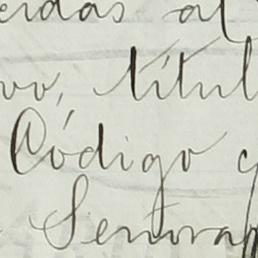 erdas al
vo, títul
Código y
Senora